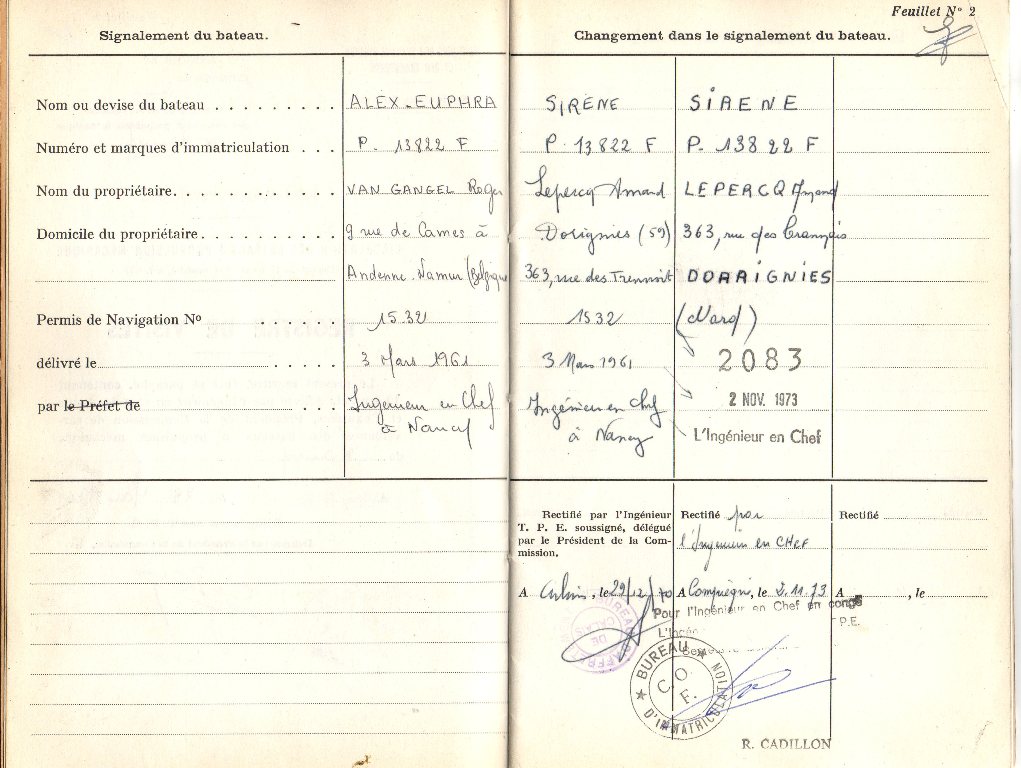 Feuillet N° 2
Signalement du bateau.
Changement dans le signalement du bateau.
Nom ou devise du bateau . . . . . . . . . ALEX-EUPHRA SIRÈNE SIRENE
Numéro et marques d'immatriculation . . . P. 13822 F P. 13822 F P. 13822 F
Nom du propriétaire. . . . . . . . . . . . VAN GANGEL Roger Lepercq Amand LEPERCQ Amand
Domicile du propriétaire. . . . . . . . . . 9 rue de Cames à Dorignies (59) 363, rue des
Andenne. Namur (Belgique 363, rue des DORRIGNIES
Permis de Navigation N° . . . . . . 1532 1532 (Nord)
délivré le . . . . . 3 Mars 1961 3 Mars 1961 2083
par le Préfet de . . . Ingenieur en Chef Ingénieur en Chef 2 NOV. 1973
à Nancy à Nancy L'Ingénieur en Chef
Rectifié par l'Ingénieur
T. P. E. soussigné, délégué
par le Président de la Com-
mission.
A , le 29/12/70
Rectifié par
l'Ingénieur en CHEF
A Compiègne, le 2.11.73
Pour l'Ingénieur en Chef en congé
L'Ingé
P.E.
BUREAU D'IMMATRICULATION
C.O.F.
R. CADILLON
Rectifié
A , le